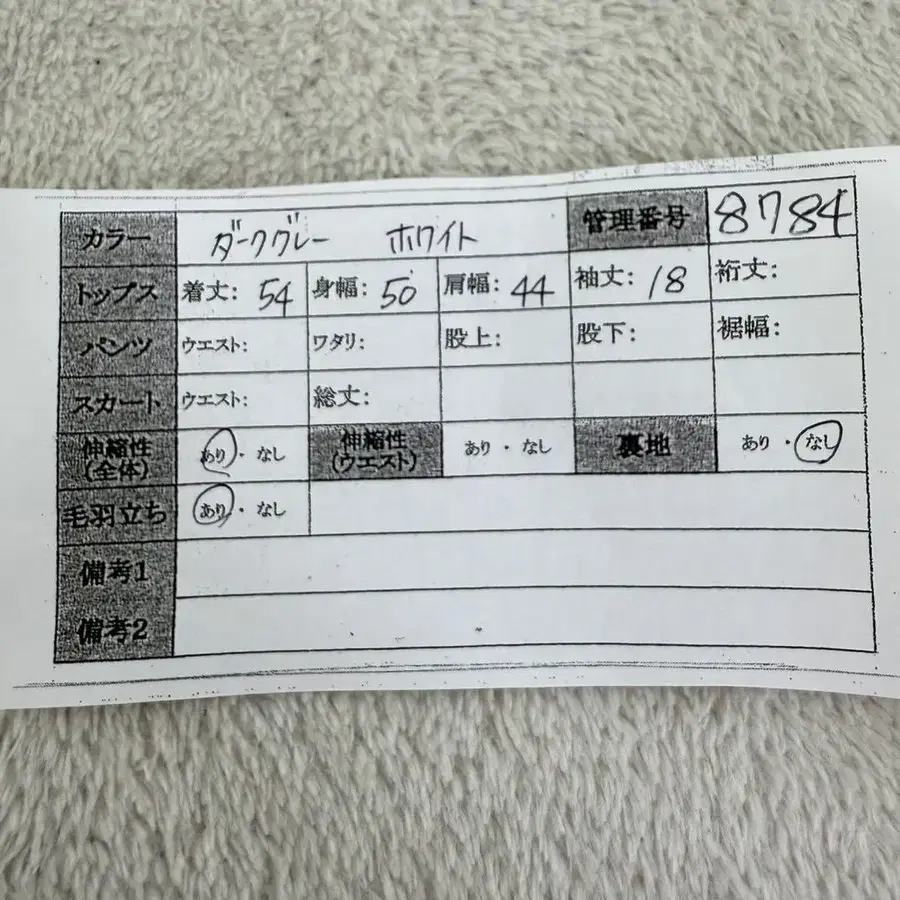 カラー ダークグレー ホワイト 管理番号 8784
トップス 着丈: 54 身幅: 50 肩幅: 44 袖丈: 18 裄丈:
パンツ ウエスト: ワタリ: 股上: 股下: 裾幅:
スカート ウエスト: 総丈:
伸縮性(全体) あり・なし 伸縮性(ウエスト) あり・なし 裏地 あり・なし
毛羽立ち あり・なし
備考1
備考2